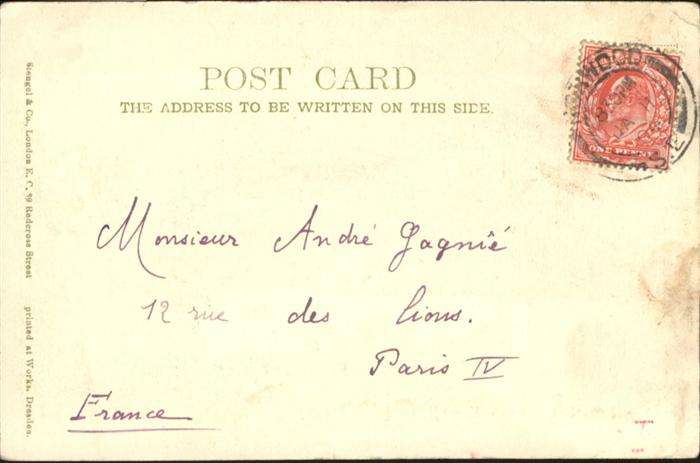 POST CARD
THE ADDRESS TO BE WRITTEN ON THIS SIDE.
ONE PENNY
Monsieur André Gagnié
12 rue des lions.
Paris IV
France
Stengel & Co., London E. C., 39 Redcross Street printed at Works, Dresden.